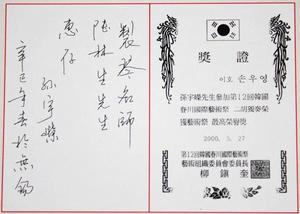 製琴名師
陸林生先生
惠存
孫宇嶸
辛巳年春於無錫
獎證
이호 손우영
孫宇嶸先生參加第12回韓國
春川國際藝術祭 二胡獨奏榮
獲藝術祭 最高榮譽獎
2000. 5. 27
第12回韓國春川國際藝術祭
藝術組織委員會委員長
柳鎭奎